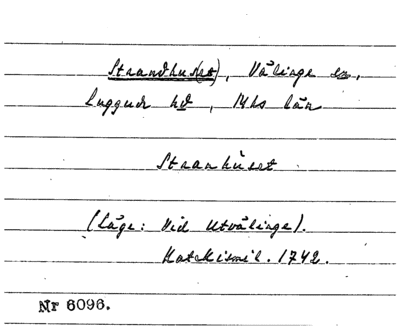 Strandhus(et), Välinge sn,
Luggude hd, Mhs län
Straanhuset
(Läge: Vid Utvälinge).
Katekismil. 1742.
Nr 6096.